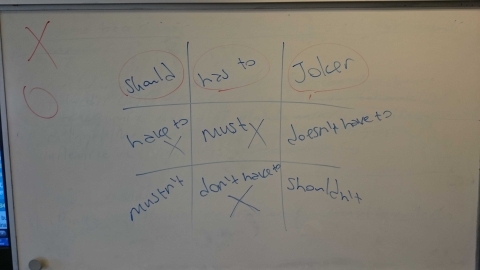 should has to Joker
have to must doesn't have to
mustn't don't have to shouldn't